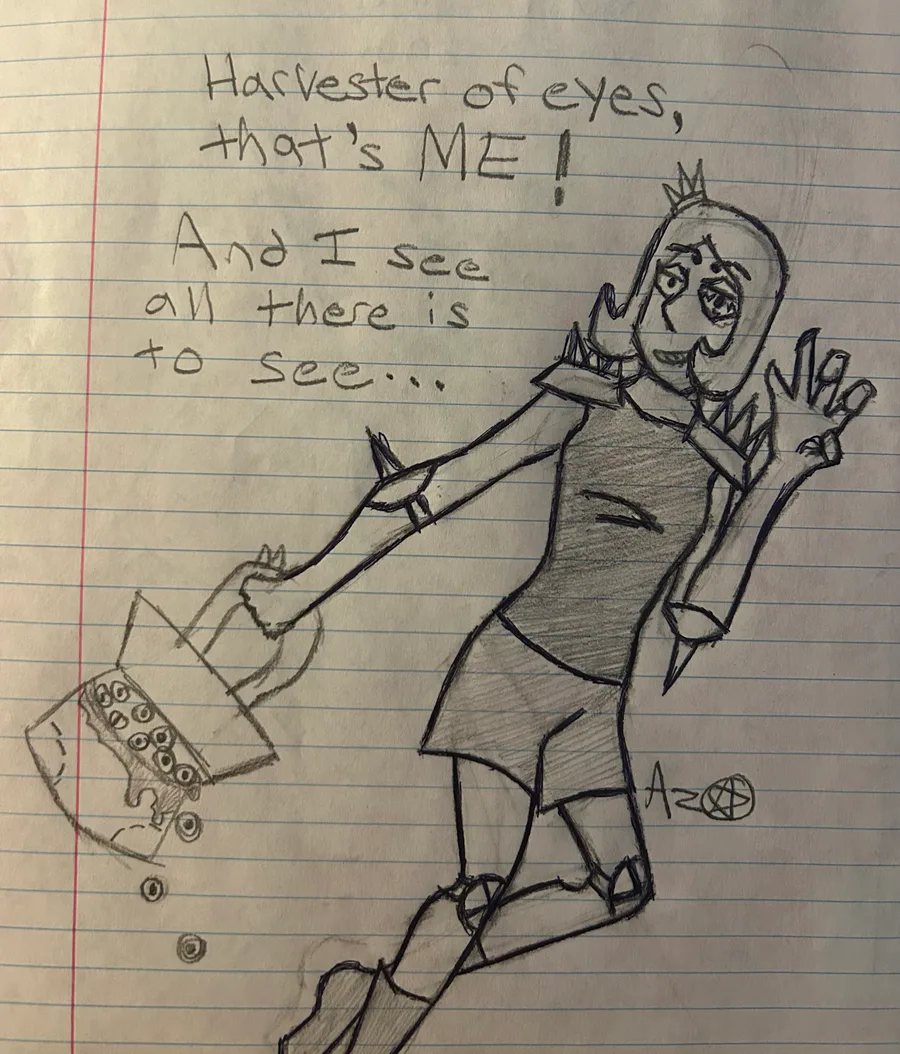 Harvester of eyes,
that's ME!
And I see
all there is
to see...
Az